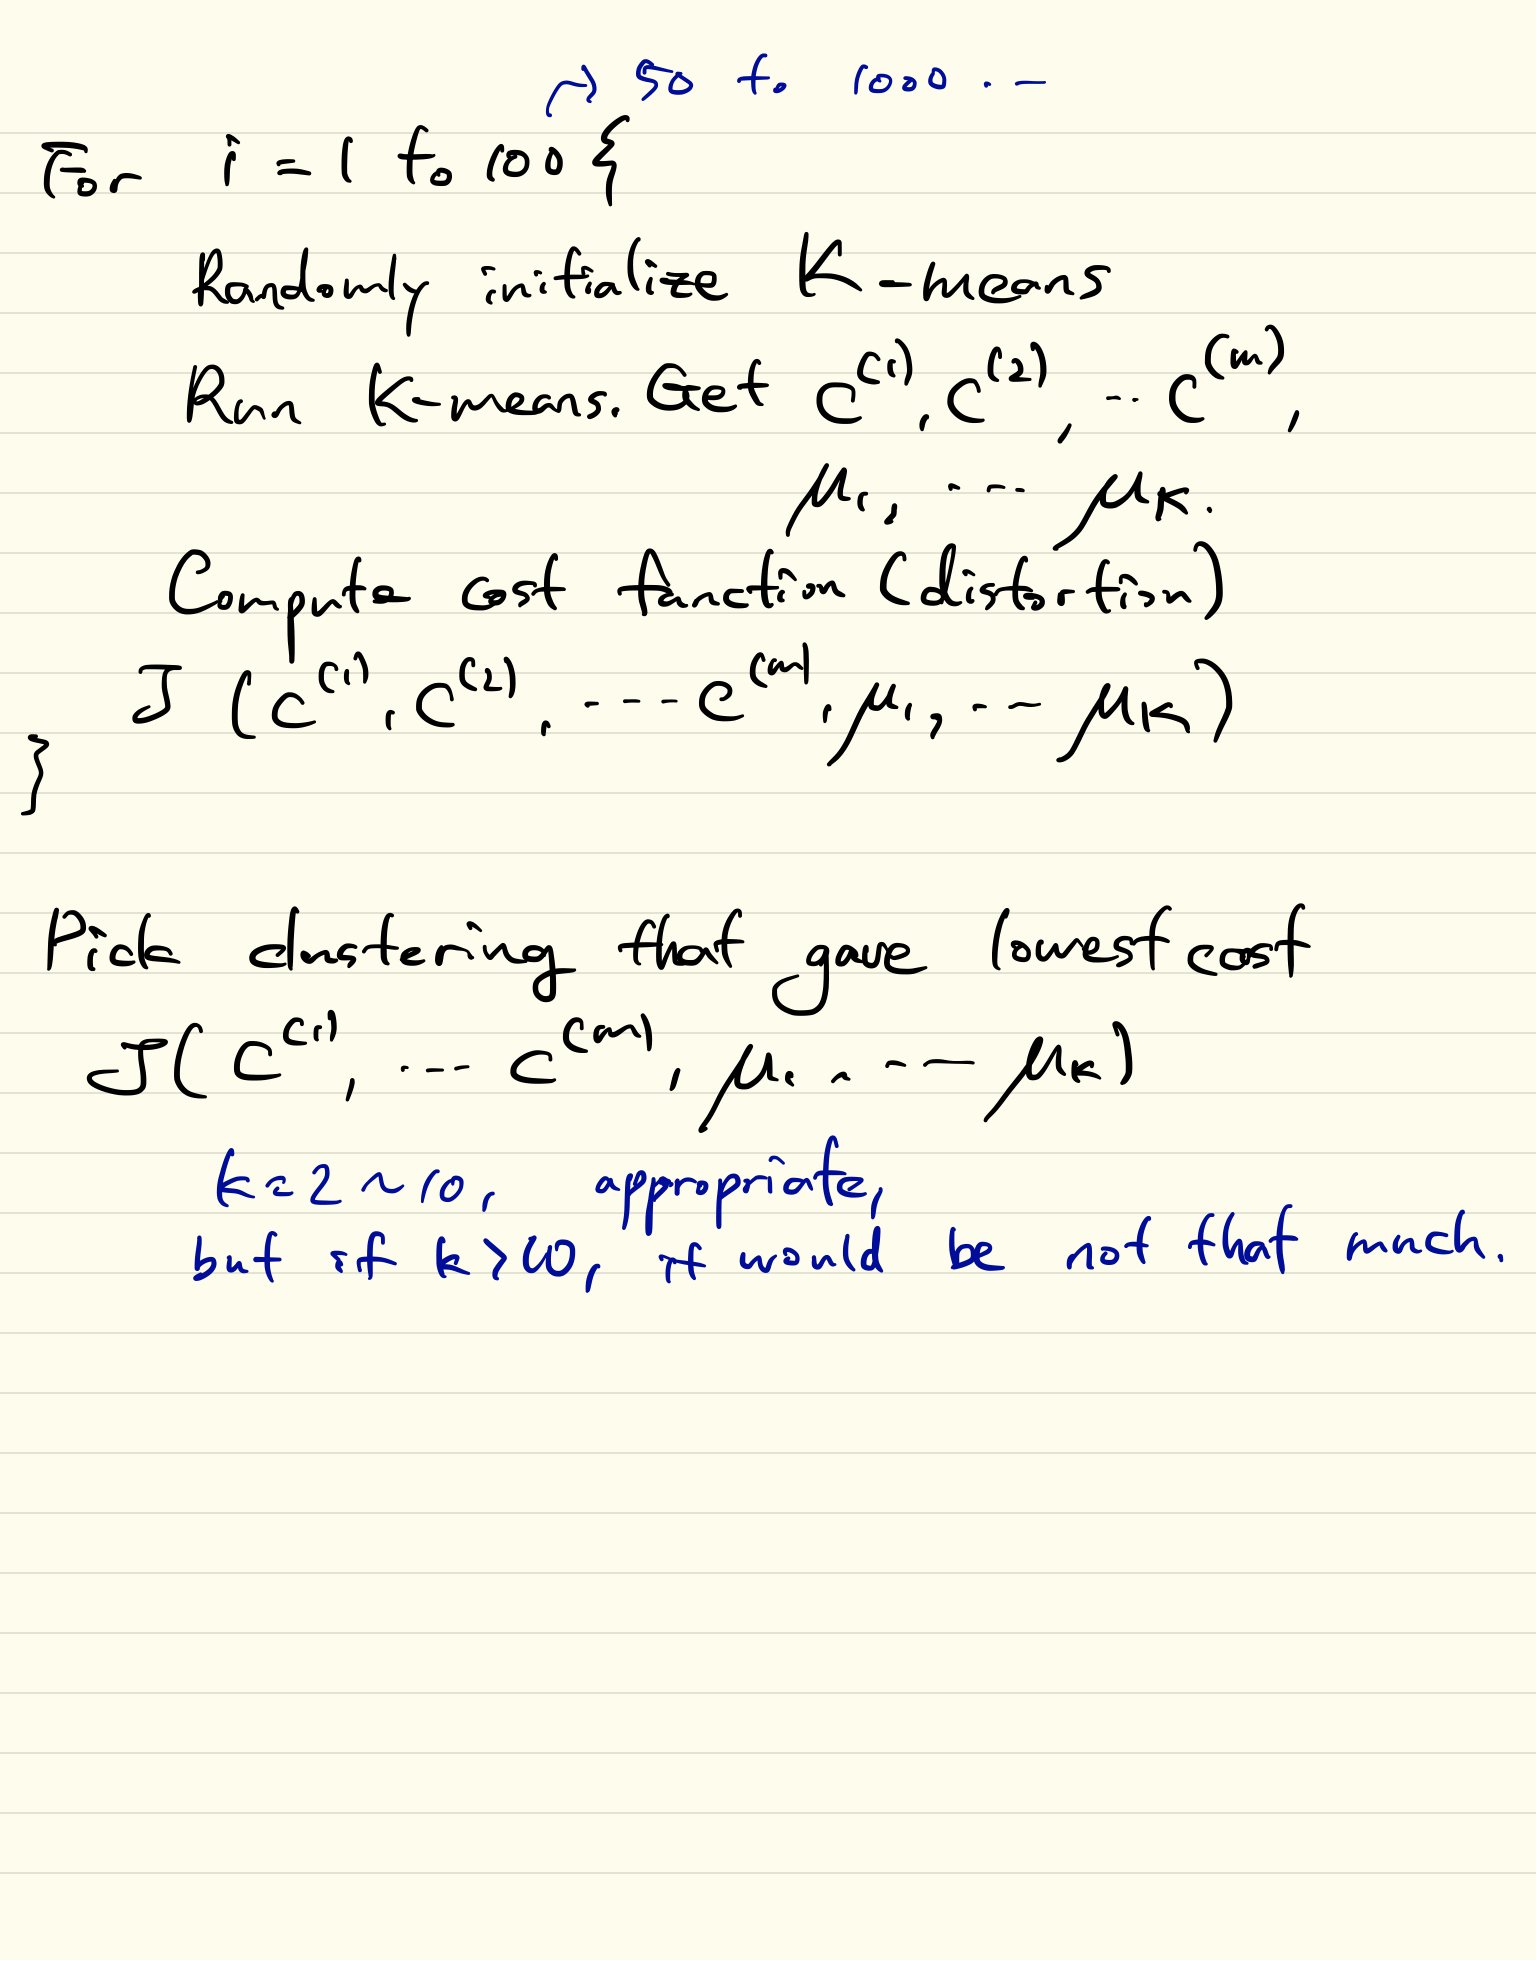 → 50 to 1000 . –
For i = 1 to 100 {
Randomly initialize K-means
Run K-means. Get c⁽¹⁾, c⁽²⁾, -- c⁽ᵐ⁾,
μ₁, --- μK.
Compute cost function (distortion)
J (c⁽¹⁾, c⁽²⁾, --- c⁽ᵐ⁾, μ₁, -- μK)
}
Pick clustering that gave lowest cost
J(c⁽¹⁾, --- c⁽ᵐ⁾, μ₁, --- μK)
k=2~10, appropriate,
but if k > 10, it would be not that much.